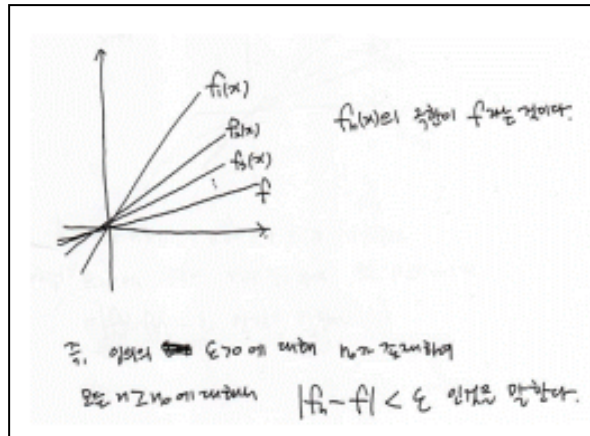 f₁(x)
f₂(x)
f₃(x)
f
x
fₙ(x)의 극한이 f라는 것이다.
즉, 임의의 ε>0에 대해 n₀가 존재하여
모든 n≥n₀에 대해서 |fₙ-f| < ε 인것을 말한다.